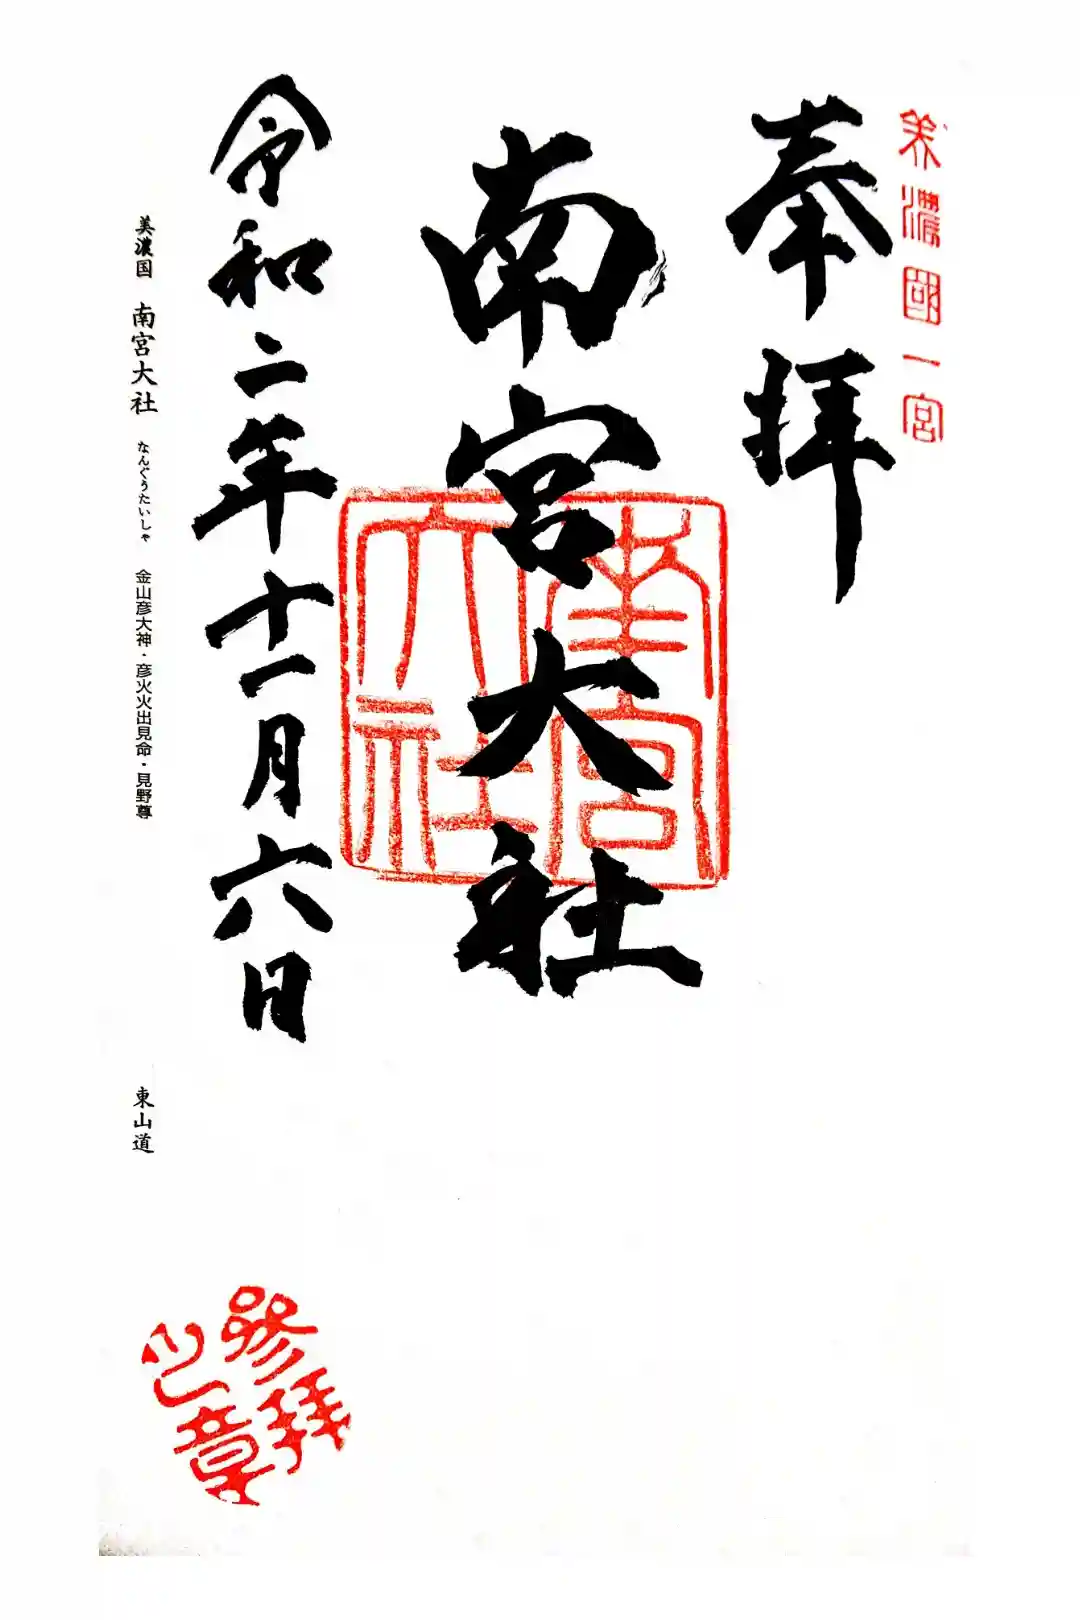 美濃國一宮
奉拝
南宮大社
南宮大社
令和二年十一月六日
美濃国 南宮大社 なんぐうたいしゃ 金山彦大神・彦火火出見命・見野尊
東山道
参拜之章